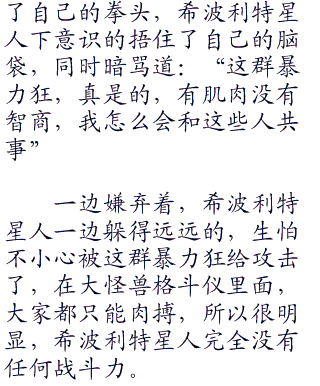 了自己的拳头，希波利特星
人下意识的捂住了自己的脑
袋，同时暗骂道：“这群暴
力狂，真是的，有肌肉没有
智商，我怎么会和这些人共
事”
一边嫌弃着，希波利特
星人一边躲得远远的，生怕
不小心被这群暴力狂给攻击
了，在大怪兽格斗仪里面，
大家都只能肉搏，所以很明
显，希波利特星人完全没有
任何战斗力。